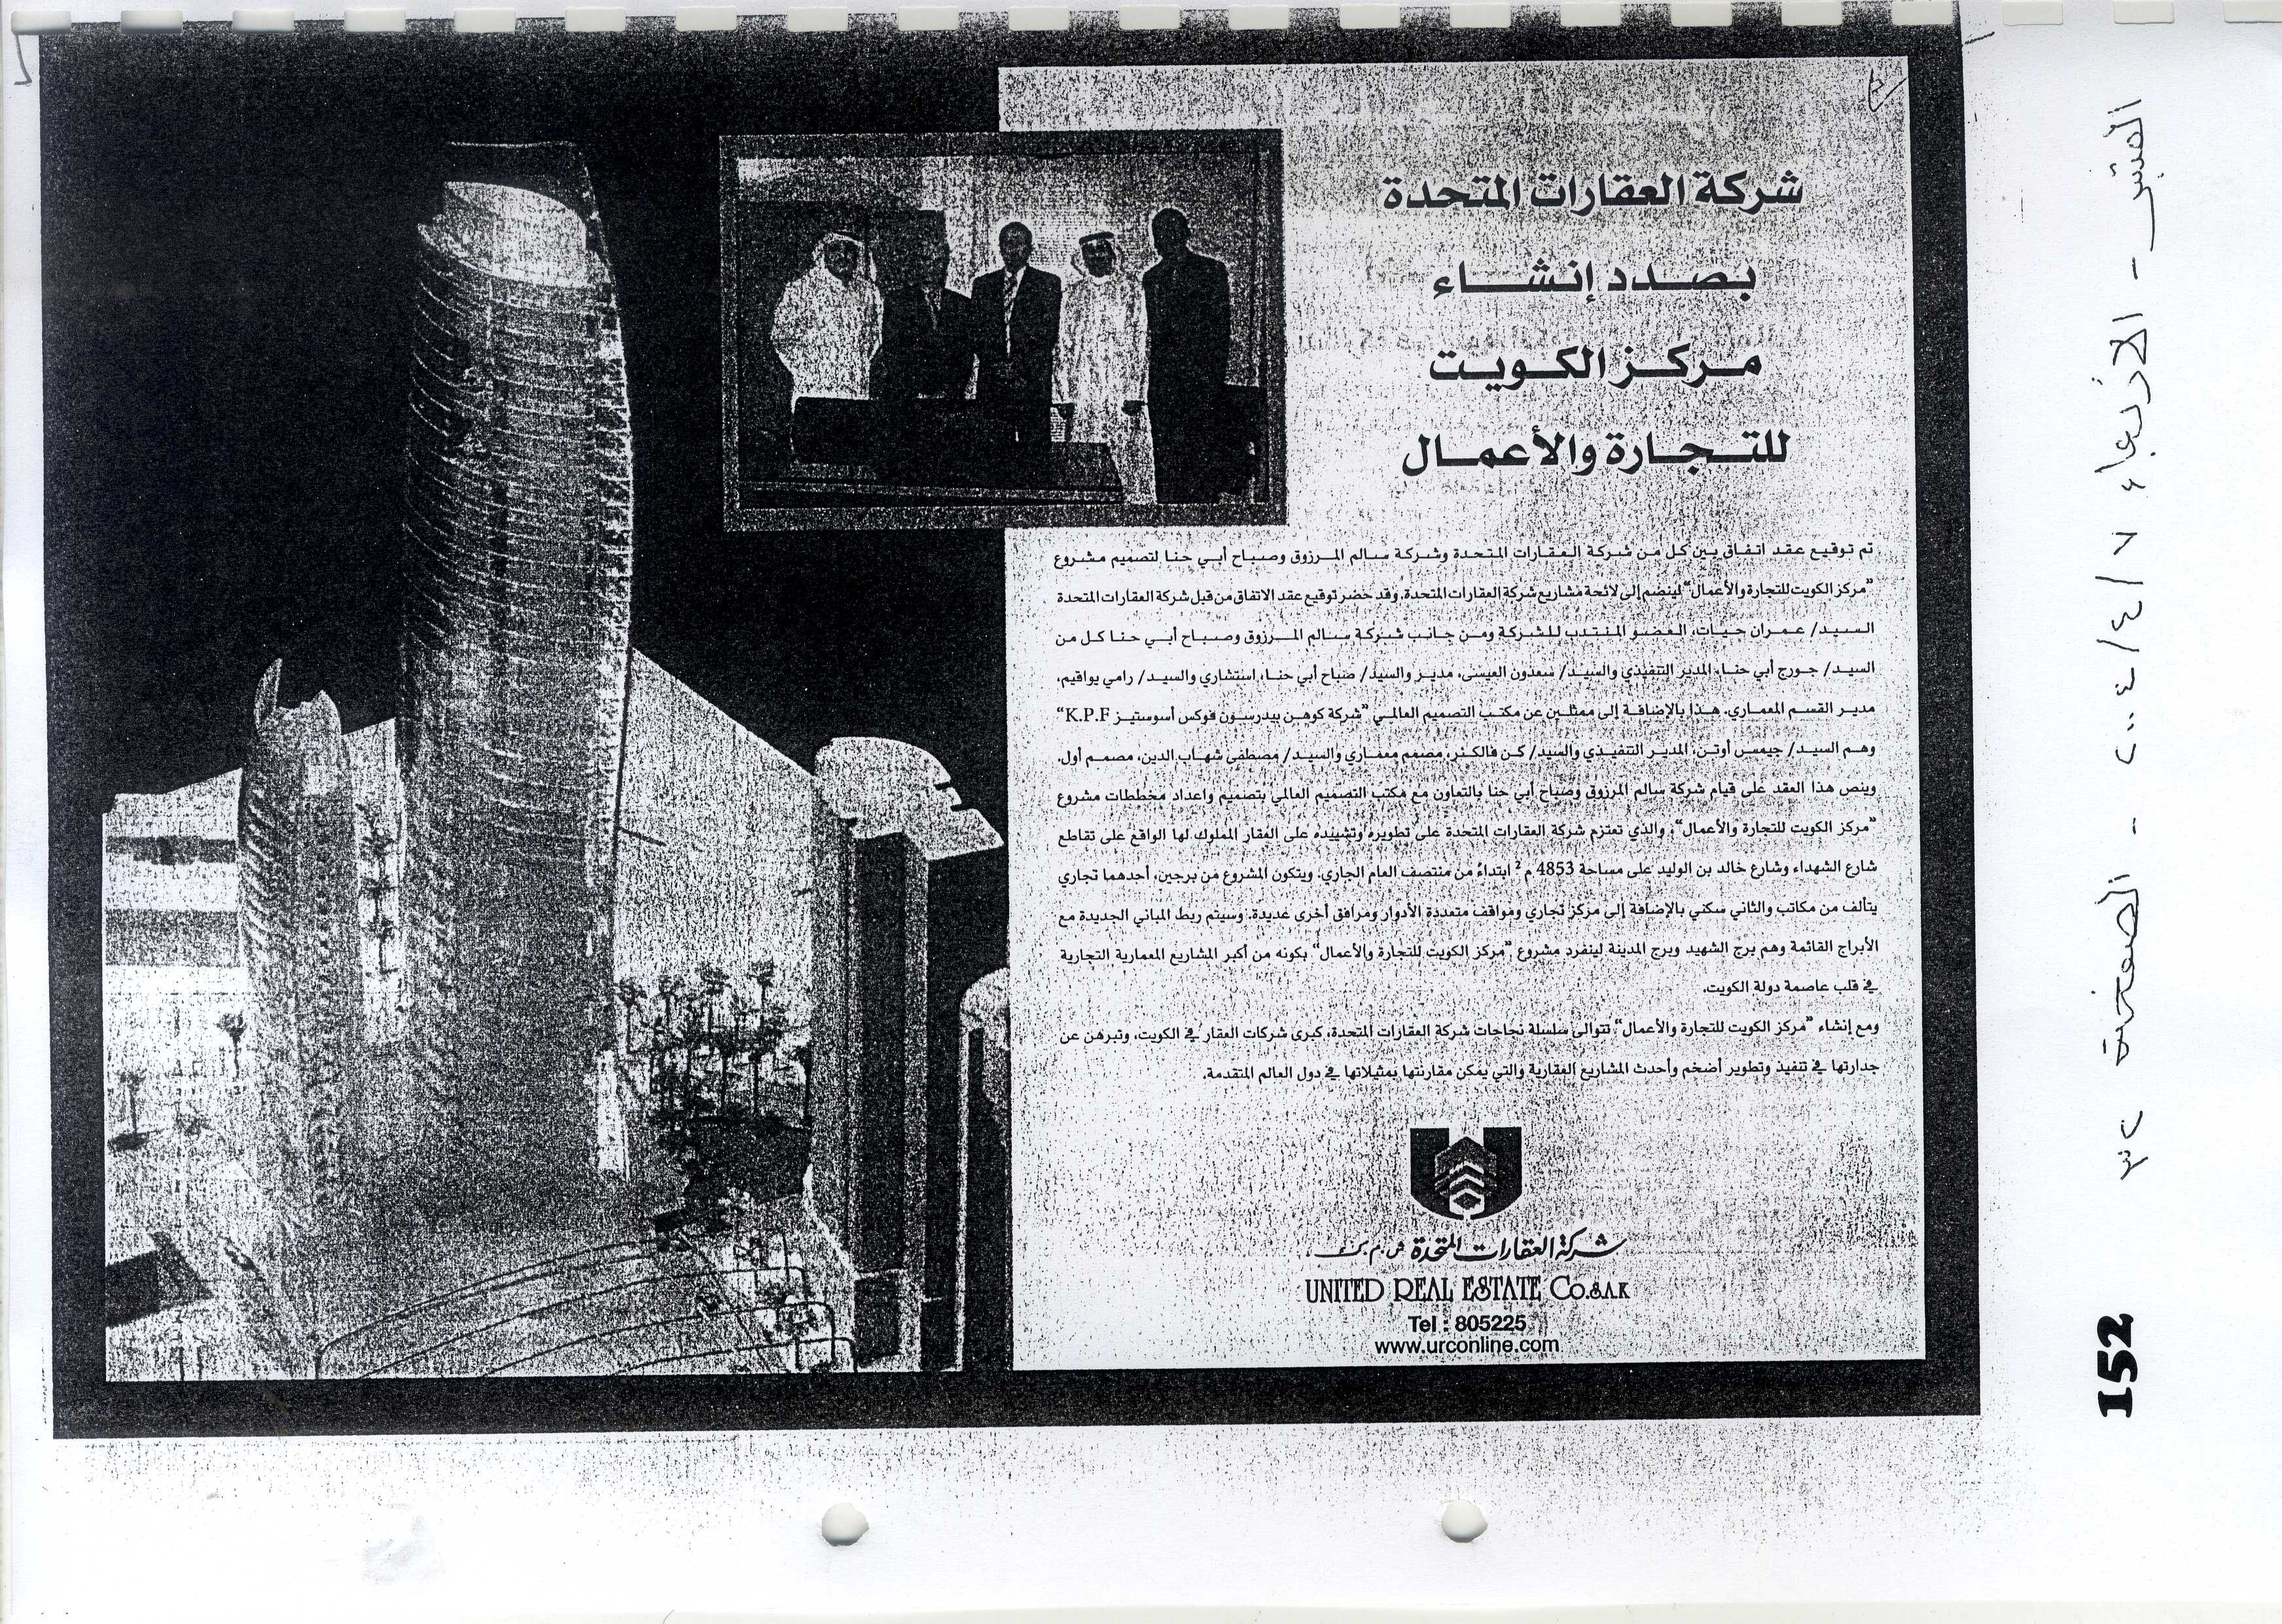 شركة العقارات المتحدة
بصدد إنشاء
مركز الكويت
للتجارة والأعمال
تم توقيع عقد اتفاق بين كل من شركة العقارات المتحدة وشركة سالم المرزوق وصباح أبي حنا لتصميم مشروع
"مركز الكويت للتجارة والأعمال" لينضم إلى لائحة مشاريع شركة العقارات المتحدة. وقد حضر توقيع عقد الاتفاق من قبل شركة العقارات المتحدة
السيد/ عمران حيات، العضو المنتدب للشركة ومن جانب شركة سالم المرزوق وصباح أبي حنا كل من
السيد/ جورج أبي حنا، المدير التنفيذي والسيد/ سعدون العيسى، مدير والسيد/ صباح أبي حنا، استشاري والسيد/ رامي يواقيم،
مدير القسم المعماري. هذا بالإضافة إلى ممثلين عن مكتب التصميم العالمي "شركة كوهن بيدرسون فوكس أسوستيز K.P.F"
وهم السيد/ جيمس أوتن، المدير التنفيذي والسيد/ كن فالكنر، مصمم معماري والسيد/ مصطفى شهاب الدين، مصمم أول.
وينص هذا العقد على قيام شركة سالم المرزوق وصباح أبي حنا بالتعاون مع مكتب التصميم العالمي بتصميم واعداد مخططات مشروع
"مركز الكويت للتجارة والأعمال"، والذي تعتزم شركة العقارات المتحدة على تطويره وتشييده على العقار المملوك لها الواقع على تقاطع
شارع الشهداء وشارع خالد بن الوليد على مساحة 4853 م² ابتداءً من منتصف العام الجاري. ويتكون المشروع من برجين، أحدهما تجاري
يتألف من مكاتب والثاني سكني بالإضافة إلى مركز تجاري ومواقف متعددة الأدوار ومرافق أخرى عديدة. وسيتم ربط المباني الجديدة مع
الأبراج القائمة وهم برج الشهيد وبرج المدينة لينفرد مشروع "مركز الكويت للتجارة والأعمال" بكونه من أكبر المشاريع المعمارية التجارية
في قلب عاصمة دولة الكويت.
ومع إنشاء "مركز الكويت للتجارة والأعمال" تتوالى سلسلة نجاحات شركة العقارات المتحدة، كبرى شركات العقار في الكويت، وتبرهن عن
جدارتها في تنفيذ وتطوير أضخم وأحدث المشاريع العقارية والتي يمكن مقارنتها بمثيلاتها في دول العالم المتقدمة.
شركة العقارات المتحدة ش.م.ك.
UNITED REAL ESTATE Co.S.A.K
Tel : 805225
www.urconline.com
القبس - الأربعاء ٧/٤/٢٠٠٤ - الصفحة ٢٣
152